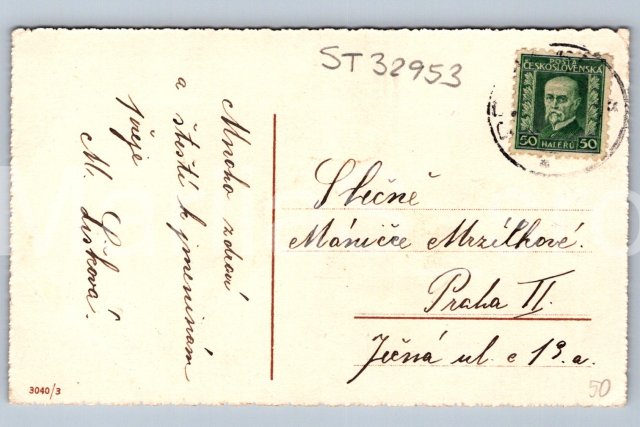 ST 32953
POŠTA
ČESKOSLOVENSKÁ
50 HALÉŘŮ 50
Mnoho zdraví
a štěstí k jmeninám
přeje
M. Lisková.
Slečně
Máničce Mrzílkové.
Praha II.
Ječná ul. č 19. a.
3040/3
50